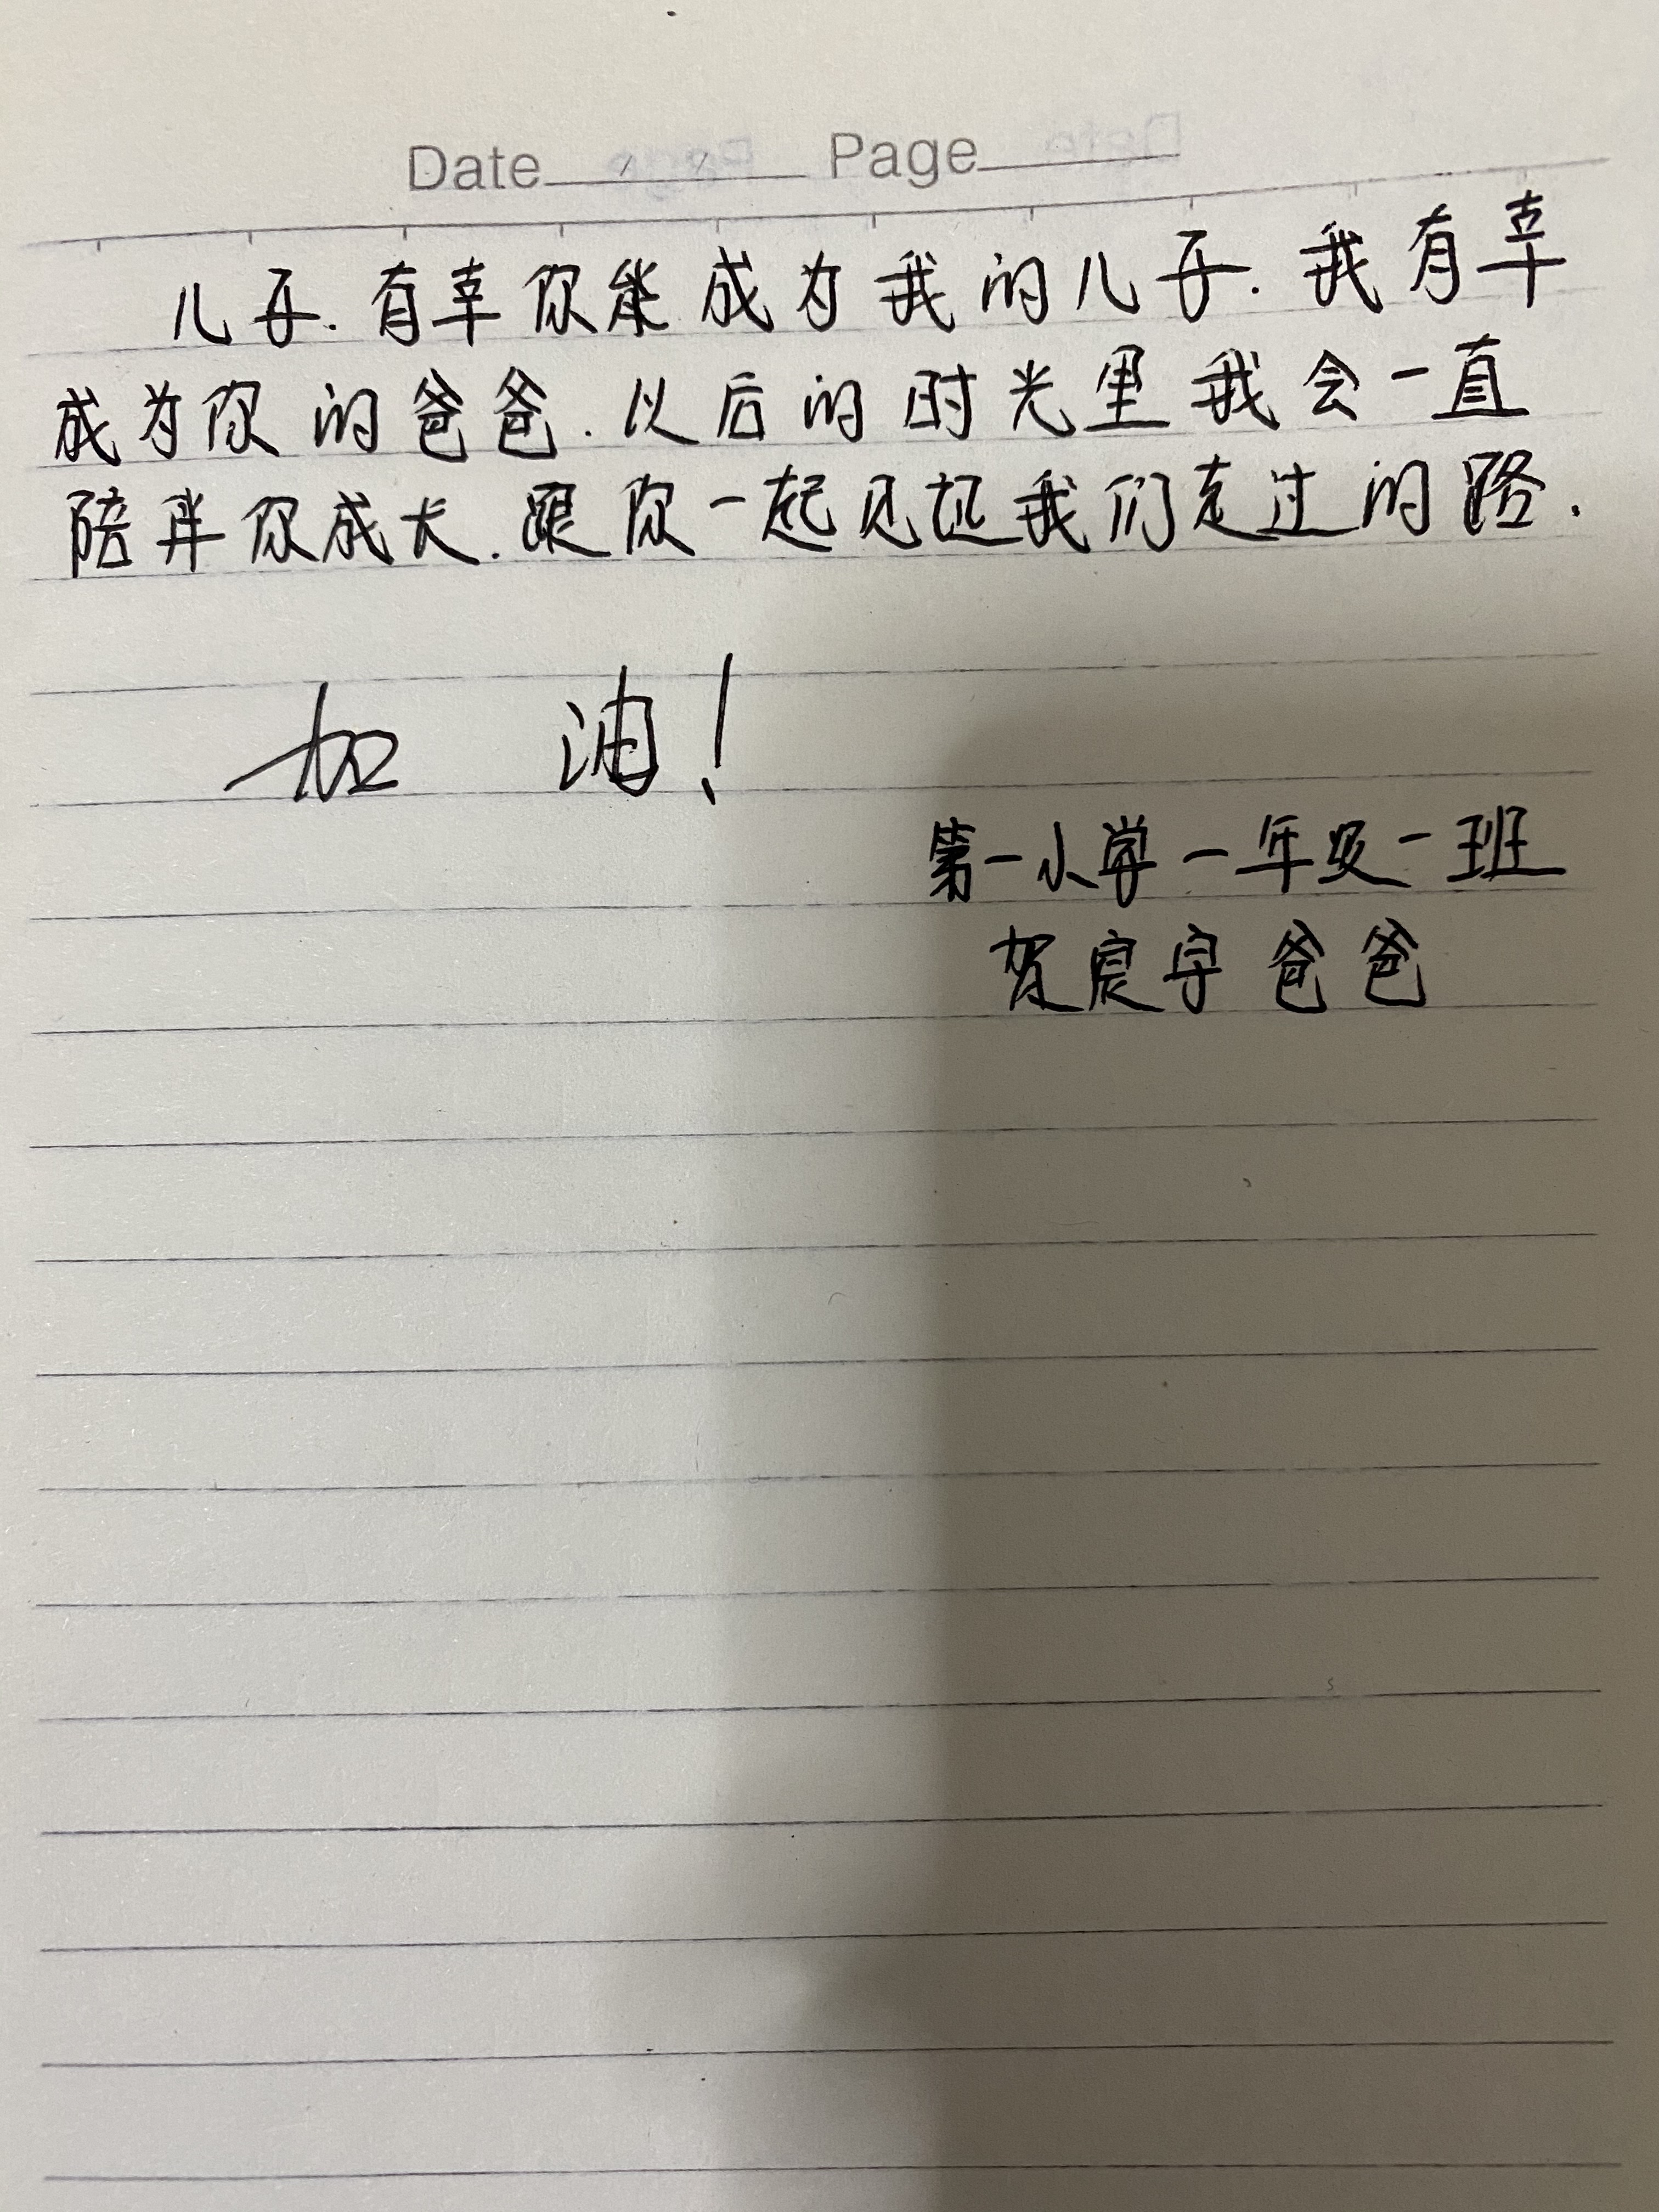 Date / / Page
儿子.有幸你能成为我的儿子.我有幸
成为你的爸爸.以后的时光里我会一直
陪伴你成长.跟你一起见证我们走过的路.
加油!
第一小学一年级一班
贺宸宇爸爸